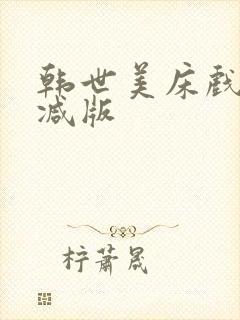 韩世美床戏
减版
柠萧晟